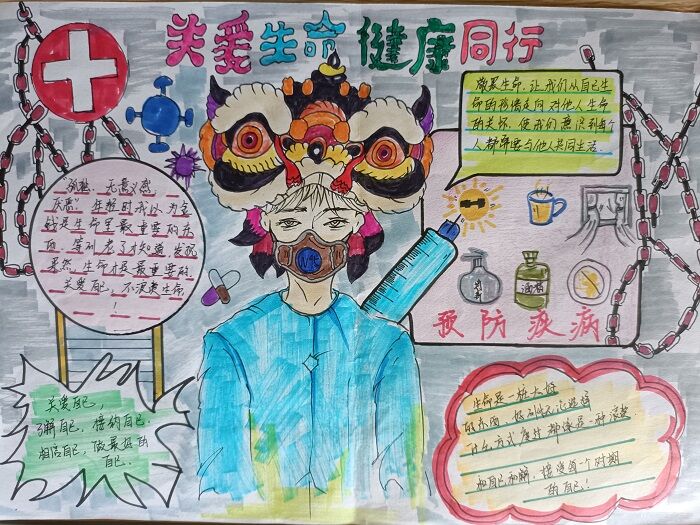 关爱生命 健康同行
敬畏生命,让我们从自己生
命的珍惜走向对他人生命
的关怀,使我们意识到每个
人都需要与他人共同生活
孤独、无意义感、
厌恶!年轻时我以为金
钱是生命里最重要的东
西,等到老了才知道,发现
果然,生命才是最重要的,
关爱自己,不浪费生命
!
N95
洗手
酒精
预防疾病
关爱自己,
了解自己,接纳自己,
相信自己,做最好的
自己.
生命是一桩太好
的东西,好到你无论选择
什么方式度过都像是一种浪费
和自己和解,接纳每一个时期
的自己!